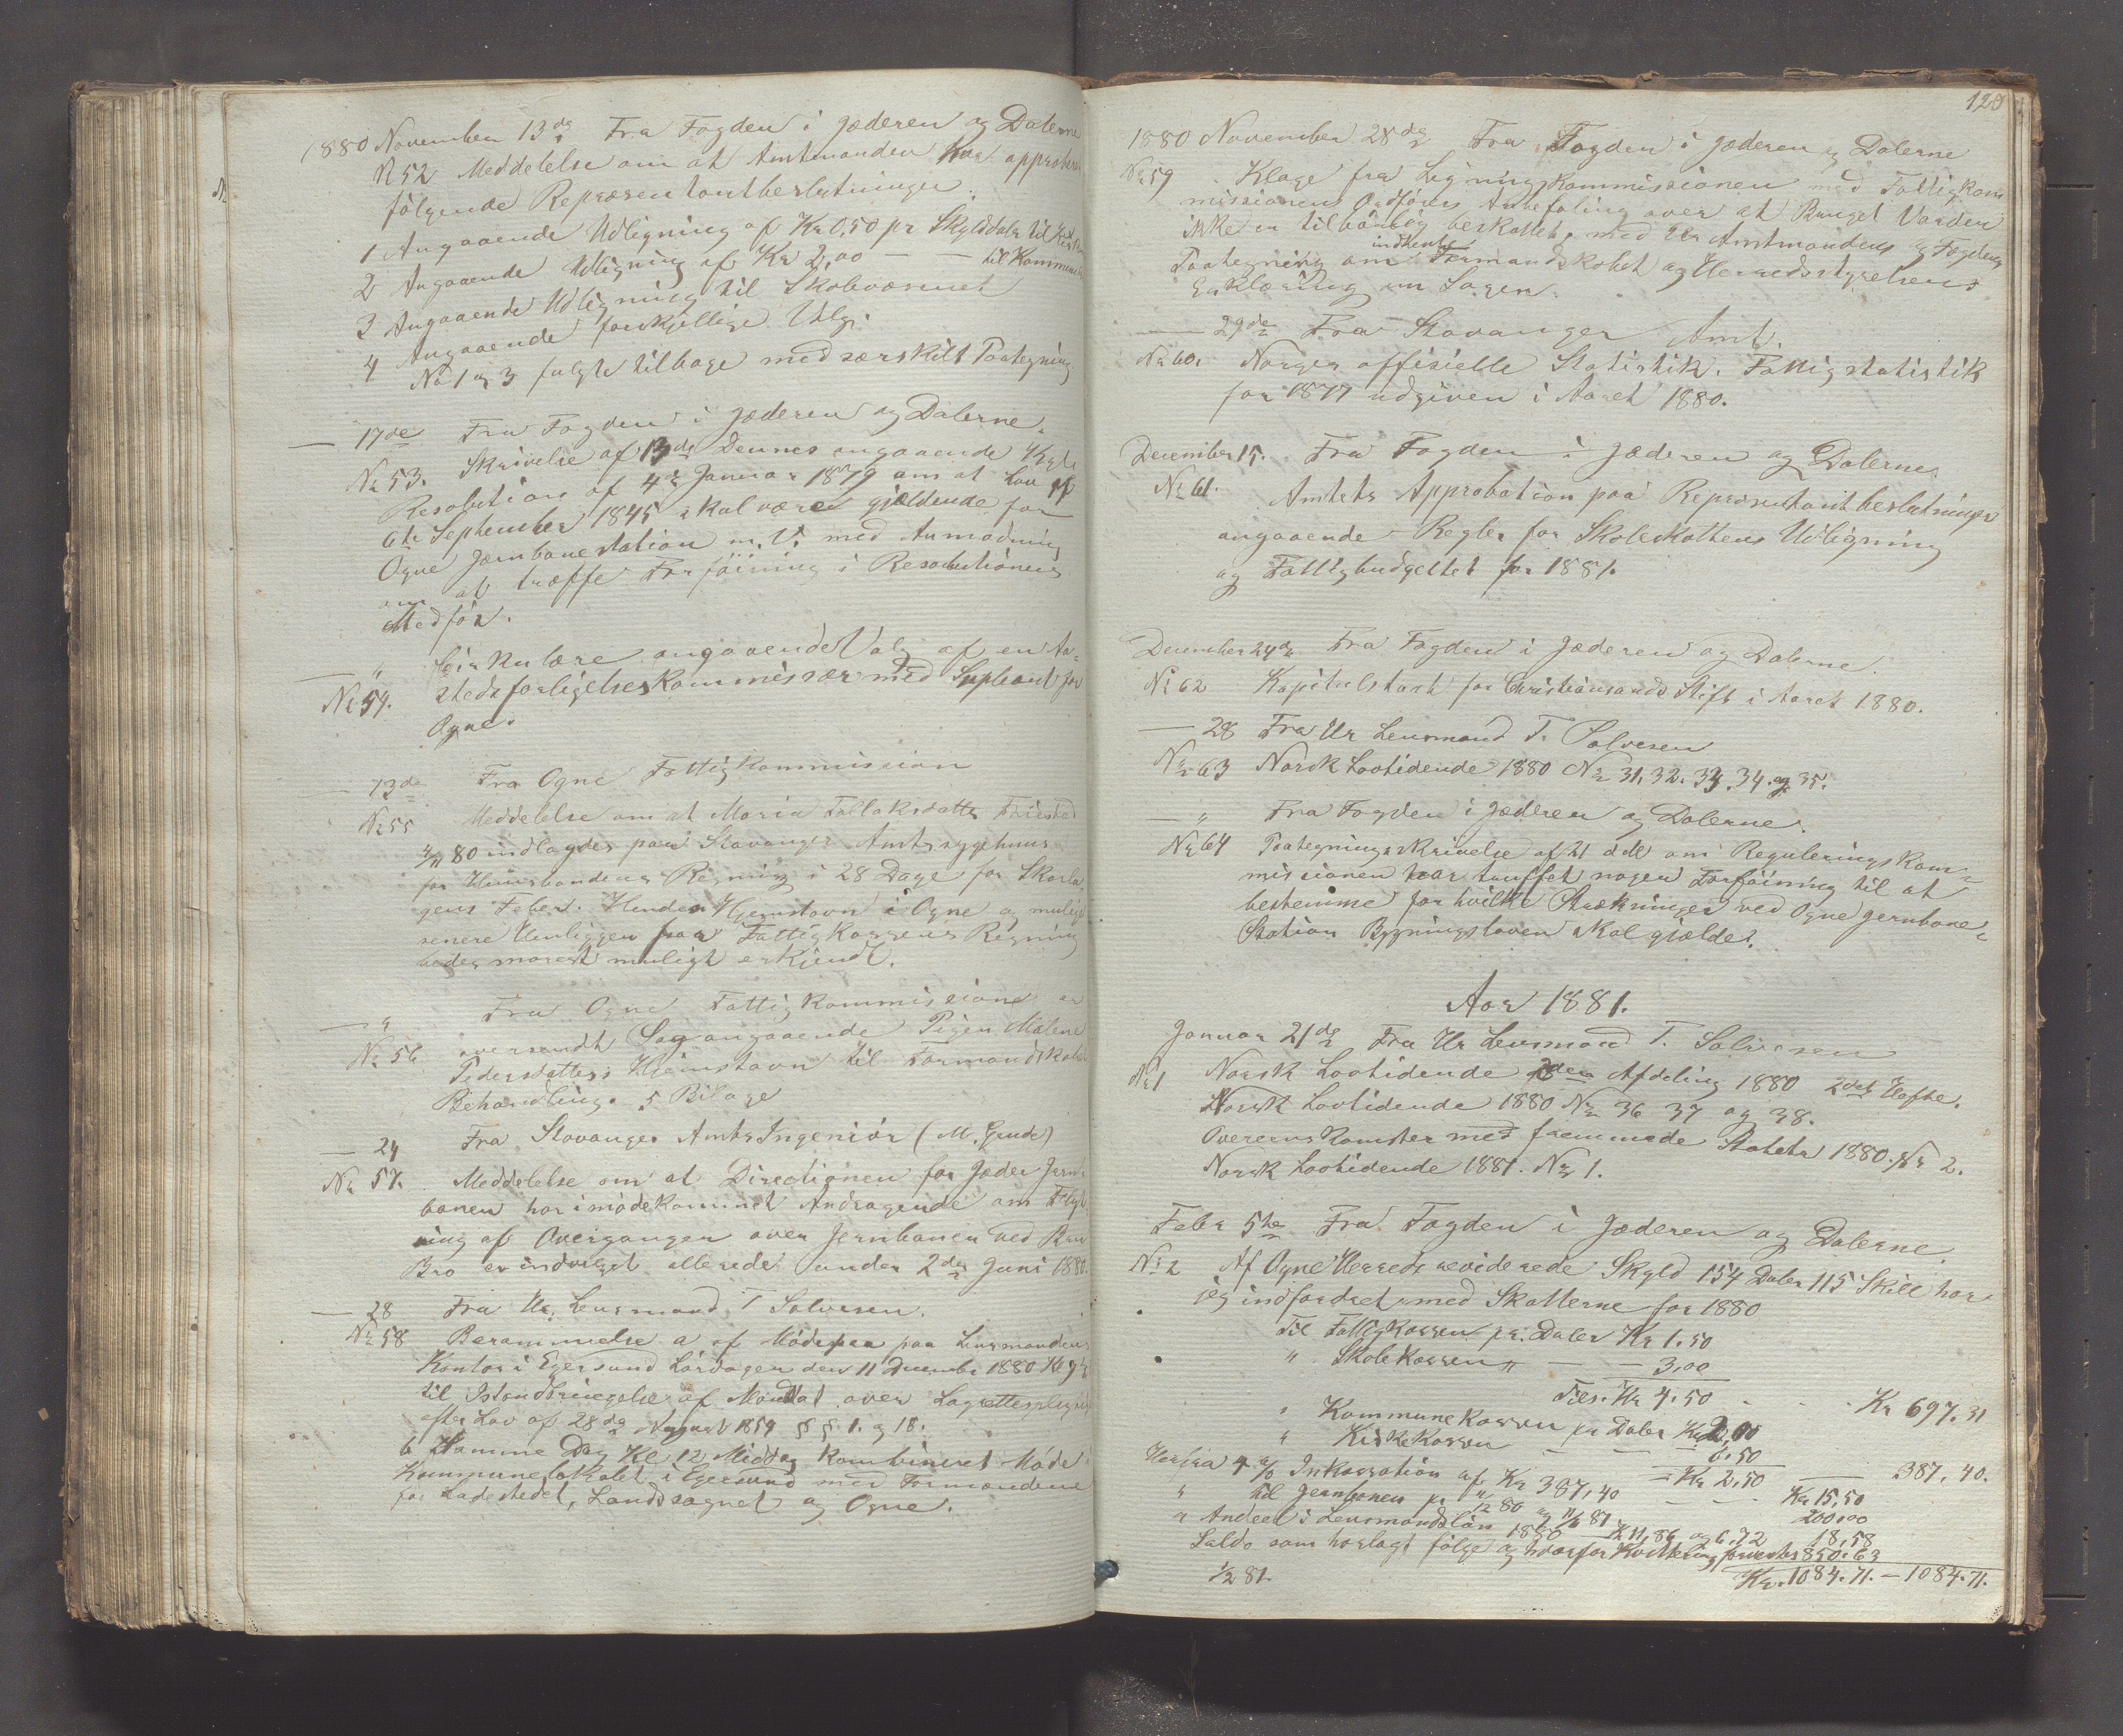 1880 November 13de Fra Fogden i Jæderen og Dalerne
No 52 Meddelelse om at Amtmanden har approberet
følgende Repræsentantbeslutninger.
1 Angaaende Udligning af Kr 0,50 pr Skylddaler til
2 Angaaende Udligning af Kr 2,00 — — til Kommune
3 Angaaende Udligning til Skolevæsenet
4 Angaaende forskjellige Valg.
No 1 og 3 fulgte tilbage med særskilt Paategning
— 17de Fra Fogden i Jæderen og Dalerne.
No 53. Skrivelse af 13de Dennes angaaende Kgl
Resolution af 4de Januar 1879 om at Lov af
6te September 1845 skal være gjældende for
Ogne Jernbanestation m. V. med Anmodning
om at træffe Forføining i Resolutionens
Medfør.
— " Cirkulære angaaende Valg af en Aa-
No 54. stedsforligelseskommissær med Supleant for
Ogne.
— 13de Fra Ogne Fattigkommission
No 55 Meddelelse om at Maria Tollaksdatter
4/11 80 indlagdes paa Stavanger Amtssygehuus
for Huusbondens Regning i 28 Dage for Skarla-
gens Feber. Hendes Hjemstavn i Ogne og mulig
senere Henliggen paa Fattigkassens Regning
bedes snarest muligt erkjendt.
— " Fra Ogne Fattigkommissione er
No 56 oversendt Sag angaaende Pigen Malene
Pedersdatters Hjemstavn til Formandskabets
Behandling. 5 Bilage
— 24 Fra Stavanger Amts Ingeniør (M. Grude)
No 57. Meddelelse om at Directionen for Jæder Jern-
banen har imødekommet Andragende om Flyt
ning af Overgangen over Jernbanen ved
Bro er indvilget allerede under 2den Juni 1880.
— 28 Fra Hr. Lensmand T Salvesen.
No 58 Berammelse a af Møde paa Lensmandens
Kontor i Egersund Lørdagen den 11 Decembr 1880 Kl 9½
til Istandbringelse af Mandtal over Lagrettespligtige
efter Lov af 28de August 1854 §§. 1. og 18.
b Samme Dag Kl 12 Middag kombineret Møde i
Kommunelokalet i Egersund med Formændene
for Ladestedet, Landssognet og Ogne.
120
1880 November 28de Fra Fogden i Jæderen og Dalerne
No 59 Klage fra Ligningskommissionen med Fattigkom
missionens Ordførers Anbefaling over at Bruget Varden
ikke er tilbørlig beskattet, med Hr Amtmandens og Fogdens
Paategning om indhente Formandskabet og Herredsstyrelsens
Erklæring om Sagen.
— 29de Fra Stavanger Amt.
No 60. Norges officielle Statistik. Fattigstatistik
for 1877 udgiven i Aaret 1880.
December 15. Fra Fogden i Jæderen og Dalerne
No 61. Amtets Approbation paa Repræsentantbeslutninger
angaaende Regler for Skoleskattens Udligning
og Fattigbudgettet for 1881.
December 24de Fra Fogden i Jæderen og Dalerne
No 62 Kapitelstaxt for Christiansands Stift i Aaret 1880.
— 28 Fra Hr Lensmand T. Salvesen
No 63 Norsk Lovtidende 1880 No 31, 32. 33. 34. og 35.
— " Fra Fogden i Jæderen og Dalerne.
No 64 Paategningsskrivelse af 21 d M om Reguleringskom-
missionen har truffet nogen Forføining til at
bestemme for hvilke Strækninger ved Ogne Jernbane-
Station Bygningsloven skal gjælde.
Aar 1881.
Januar 21de Fra Hr Lensmand T. Salvesen
No 1 Norsk Lovtidende 2den Afdeling 1880 2det Hefte.
Norsk Lovtidende 1880 No 36 37 og 38.
Overenskomster med fremmede Stater 1880. No 2.
Norsk Lovtidende 1881. No 1.
Febr 5te Fra Fogden i Jæderen og Dalerne
No 2 Af Ogne Herreds reviderede Skyld 154 Daler 115 Skill har
jeg indfordret med Skatterne for 1880
Til Fattigkassen pr. Daler Kr 1.50
" Skolekassen " — — 3,00
Tils. Kr 4.50 . . . Kr 697.31
" Kommunekassen pr Daler Kr 2,00
" Kirkekassen — — 0.50
— Kr 2,50 — 387,40.
Herfra 4 % Inkassation af Kr 387,40 — Kr 15,50
" til Jernbanen pr 12 80 og 81 — — 200,00
" Andeel i Lensmandsløn 1880 — Kr 11,86 og 6.72 18,58
Saldo som horlagt følge og hvorfor Kvittering forventes 850.63
½ 81. Kr. 1084.71. — 1084.71.